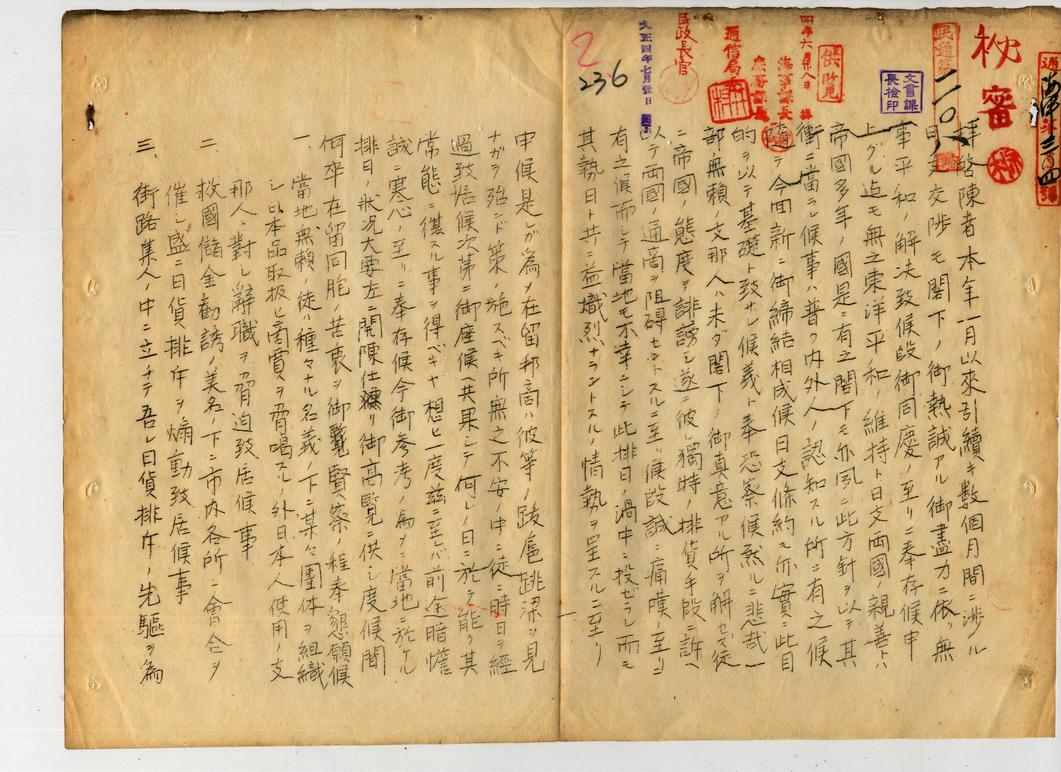 秘
236
供覧
文書課
長検印
海事課長
通信局
民政長官
大正四年七月壹日
拝啓陳者本年一月以來引續キ數個月間ニ渉ル
日支交渉モ閣下ノ御熱誠アル御盡力ニ依リ無
事平和ニ解決致候段御同慶ノ至リニ奉存候申
上グル迄モ無之東洋平和ノ維持ト日支両國親善トハ
帝國多年ノ國是ニ有之閣下モ亦夙ニ此方針ヲ以テ其
衝ニ當ラレ候事ハ普ク内外人ノ認知スル所ニ有之候
随テ今回新ニ御締結相成候日支條約モ亦實ニ此目
的ヲ以テ基礎ト致サレ候義ト奉恐察候然ルニ悲哉一
部無頼ノ支那人ハ未ダ閣下ノ御真意アル所ヲ解セズ徒
ニ帝國ノ態度ヲ誹謗シ遂ニ彼獨特ノ排貨手段ニ訴ヘ
以テ両國ノ通商ヲ阻碍セントスルニ至リ候段誠ニ痛嘆ノ至リニ
有之候而シテ當地モ不幸ニシテ此排日ノ渦中ニ投ゼラレ而モ
其執日ト共ニ益熾烈ナラントスルノ情勢ヲ呈スルニ至リ
申候是レガ為メ在留邦商ハ彼等ノ跋扈跳梁ヲ見
ナガラ殆ンド策ノ施スベキ所無之不安ノ中ニ徒ニ時日ヲ經
過致居候次第ニ御座候ヘ共果シテ何レノ日ニ於テ能ク其
常態ニ復スル事ヲ得ベキヤ想ヒ一度茲ニ至レバ前途暗憺
誠ニ寒心ノ至リニ奉存候今御参考ノ為メニ當地ニ於ケル
排日ノ狀况大要左ニ開陳仕リ御高覧ニ供シ度候間
何卒在留同胞ノ苦衷ヲ御賢察ノ程奉懇願候
一、當地無頼ノ徒種々ナル名義ノ下ニ某々團体ヲ組織
シ日本品取扱ヒ商賈ヲ脅喝スルノ外日本人使用ノ支
那人ニ對シ辭職ヲ脅迫致居候事
二、救國儲金勸誘ノ美名ノ下ニ市内各所ニ會合ヲ
催シ盛ニ日貨排斥ヲ煽動致居候事
三、街路集人ノ中ニ立チテ吾レ日貨排斥ノ先驅ヲ為